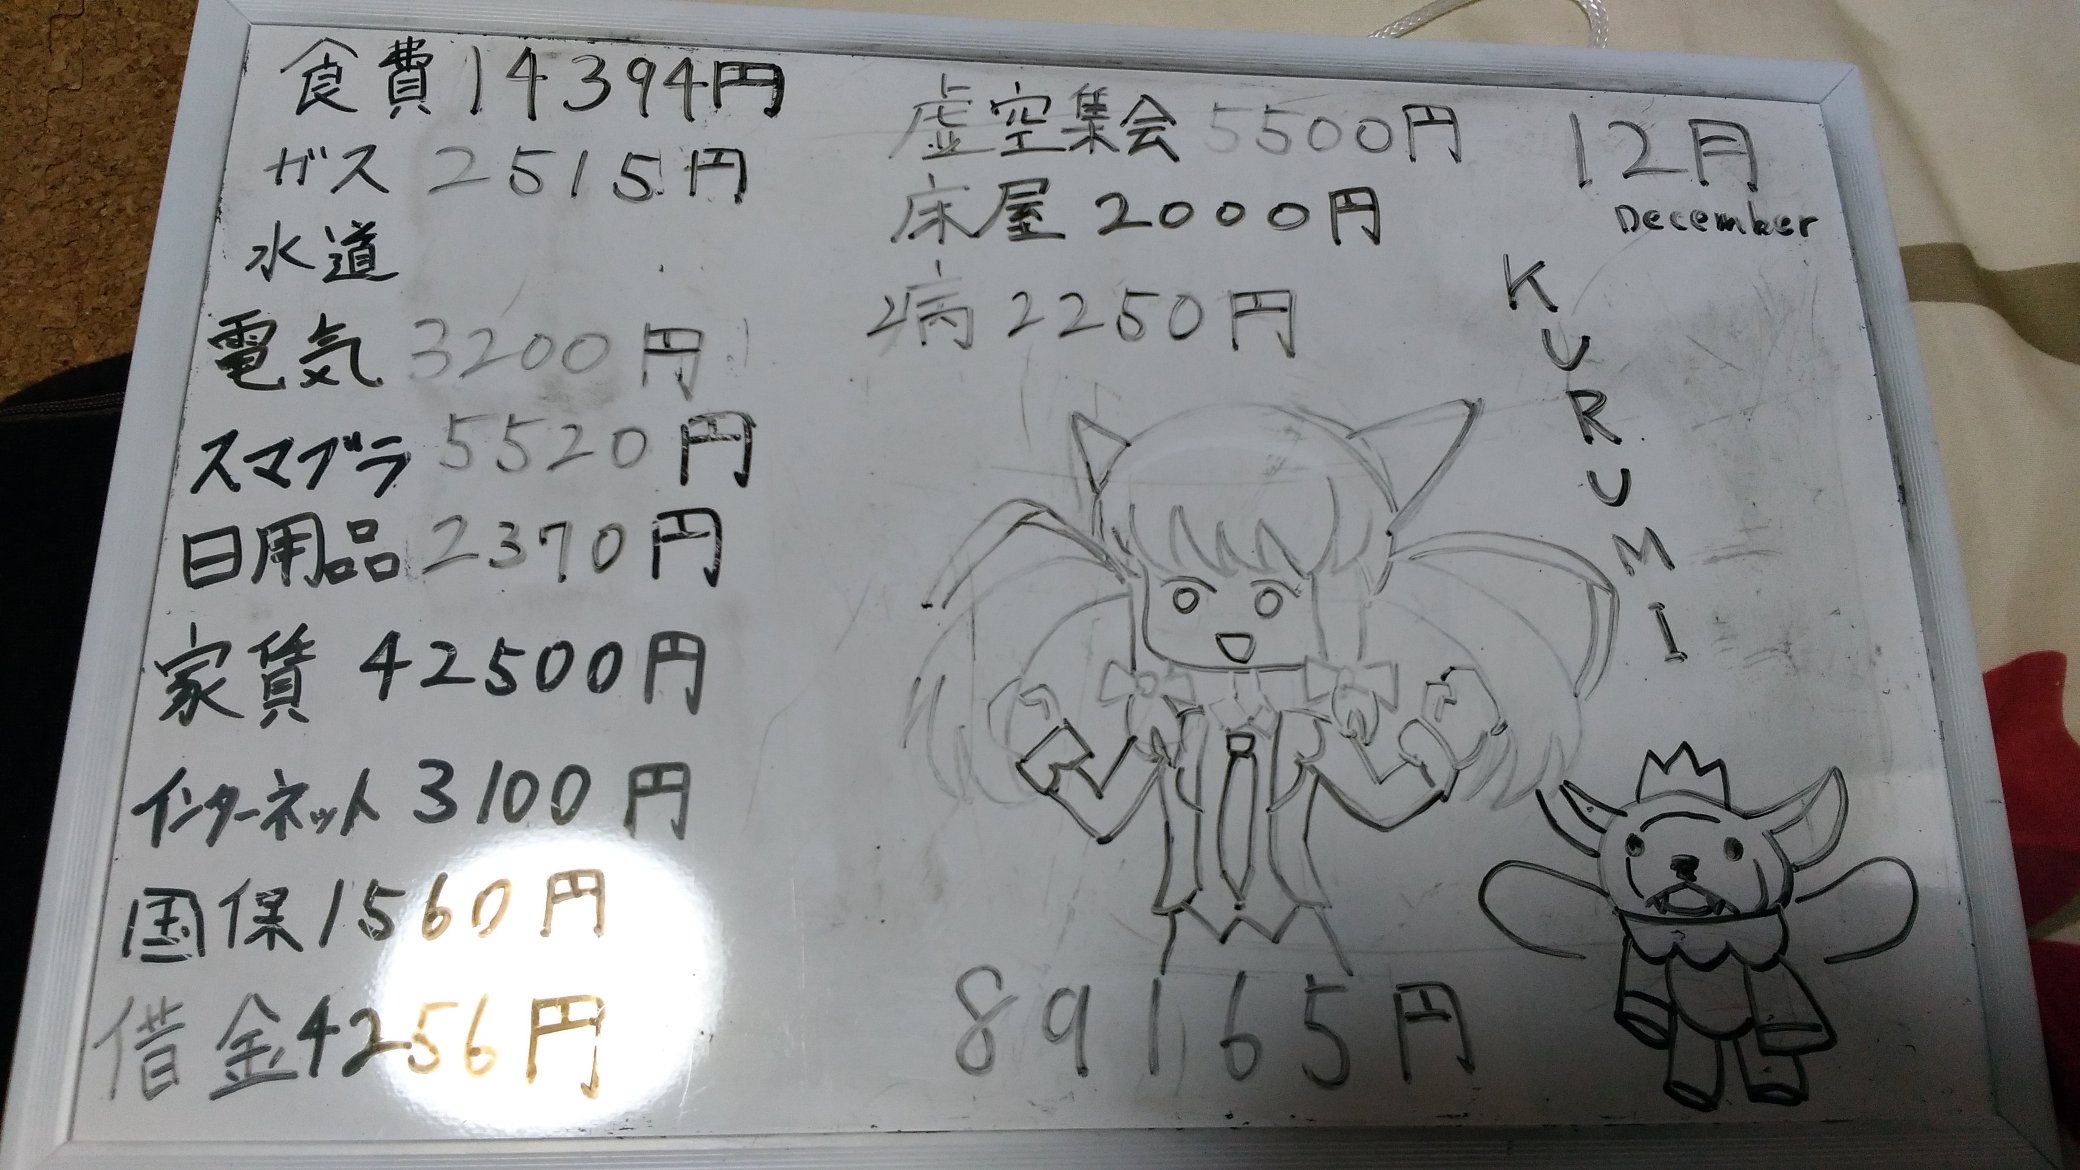 食費 14394円
ガス 2515円
水道
電気 3200円
スマブラ 5520円
日用品 2370円
家賃 42500円
インターネット 3100円
国保 1560円
借金 4256円
虚空集会 5500円
床屋 2000円
病 2250円
12月
December
KURUMI
89165円